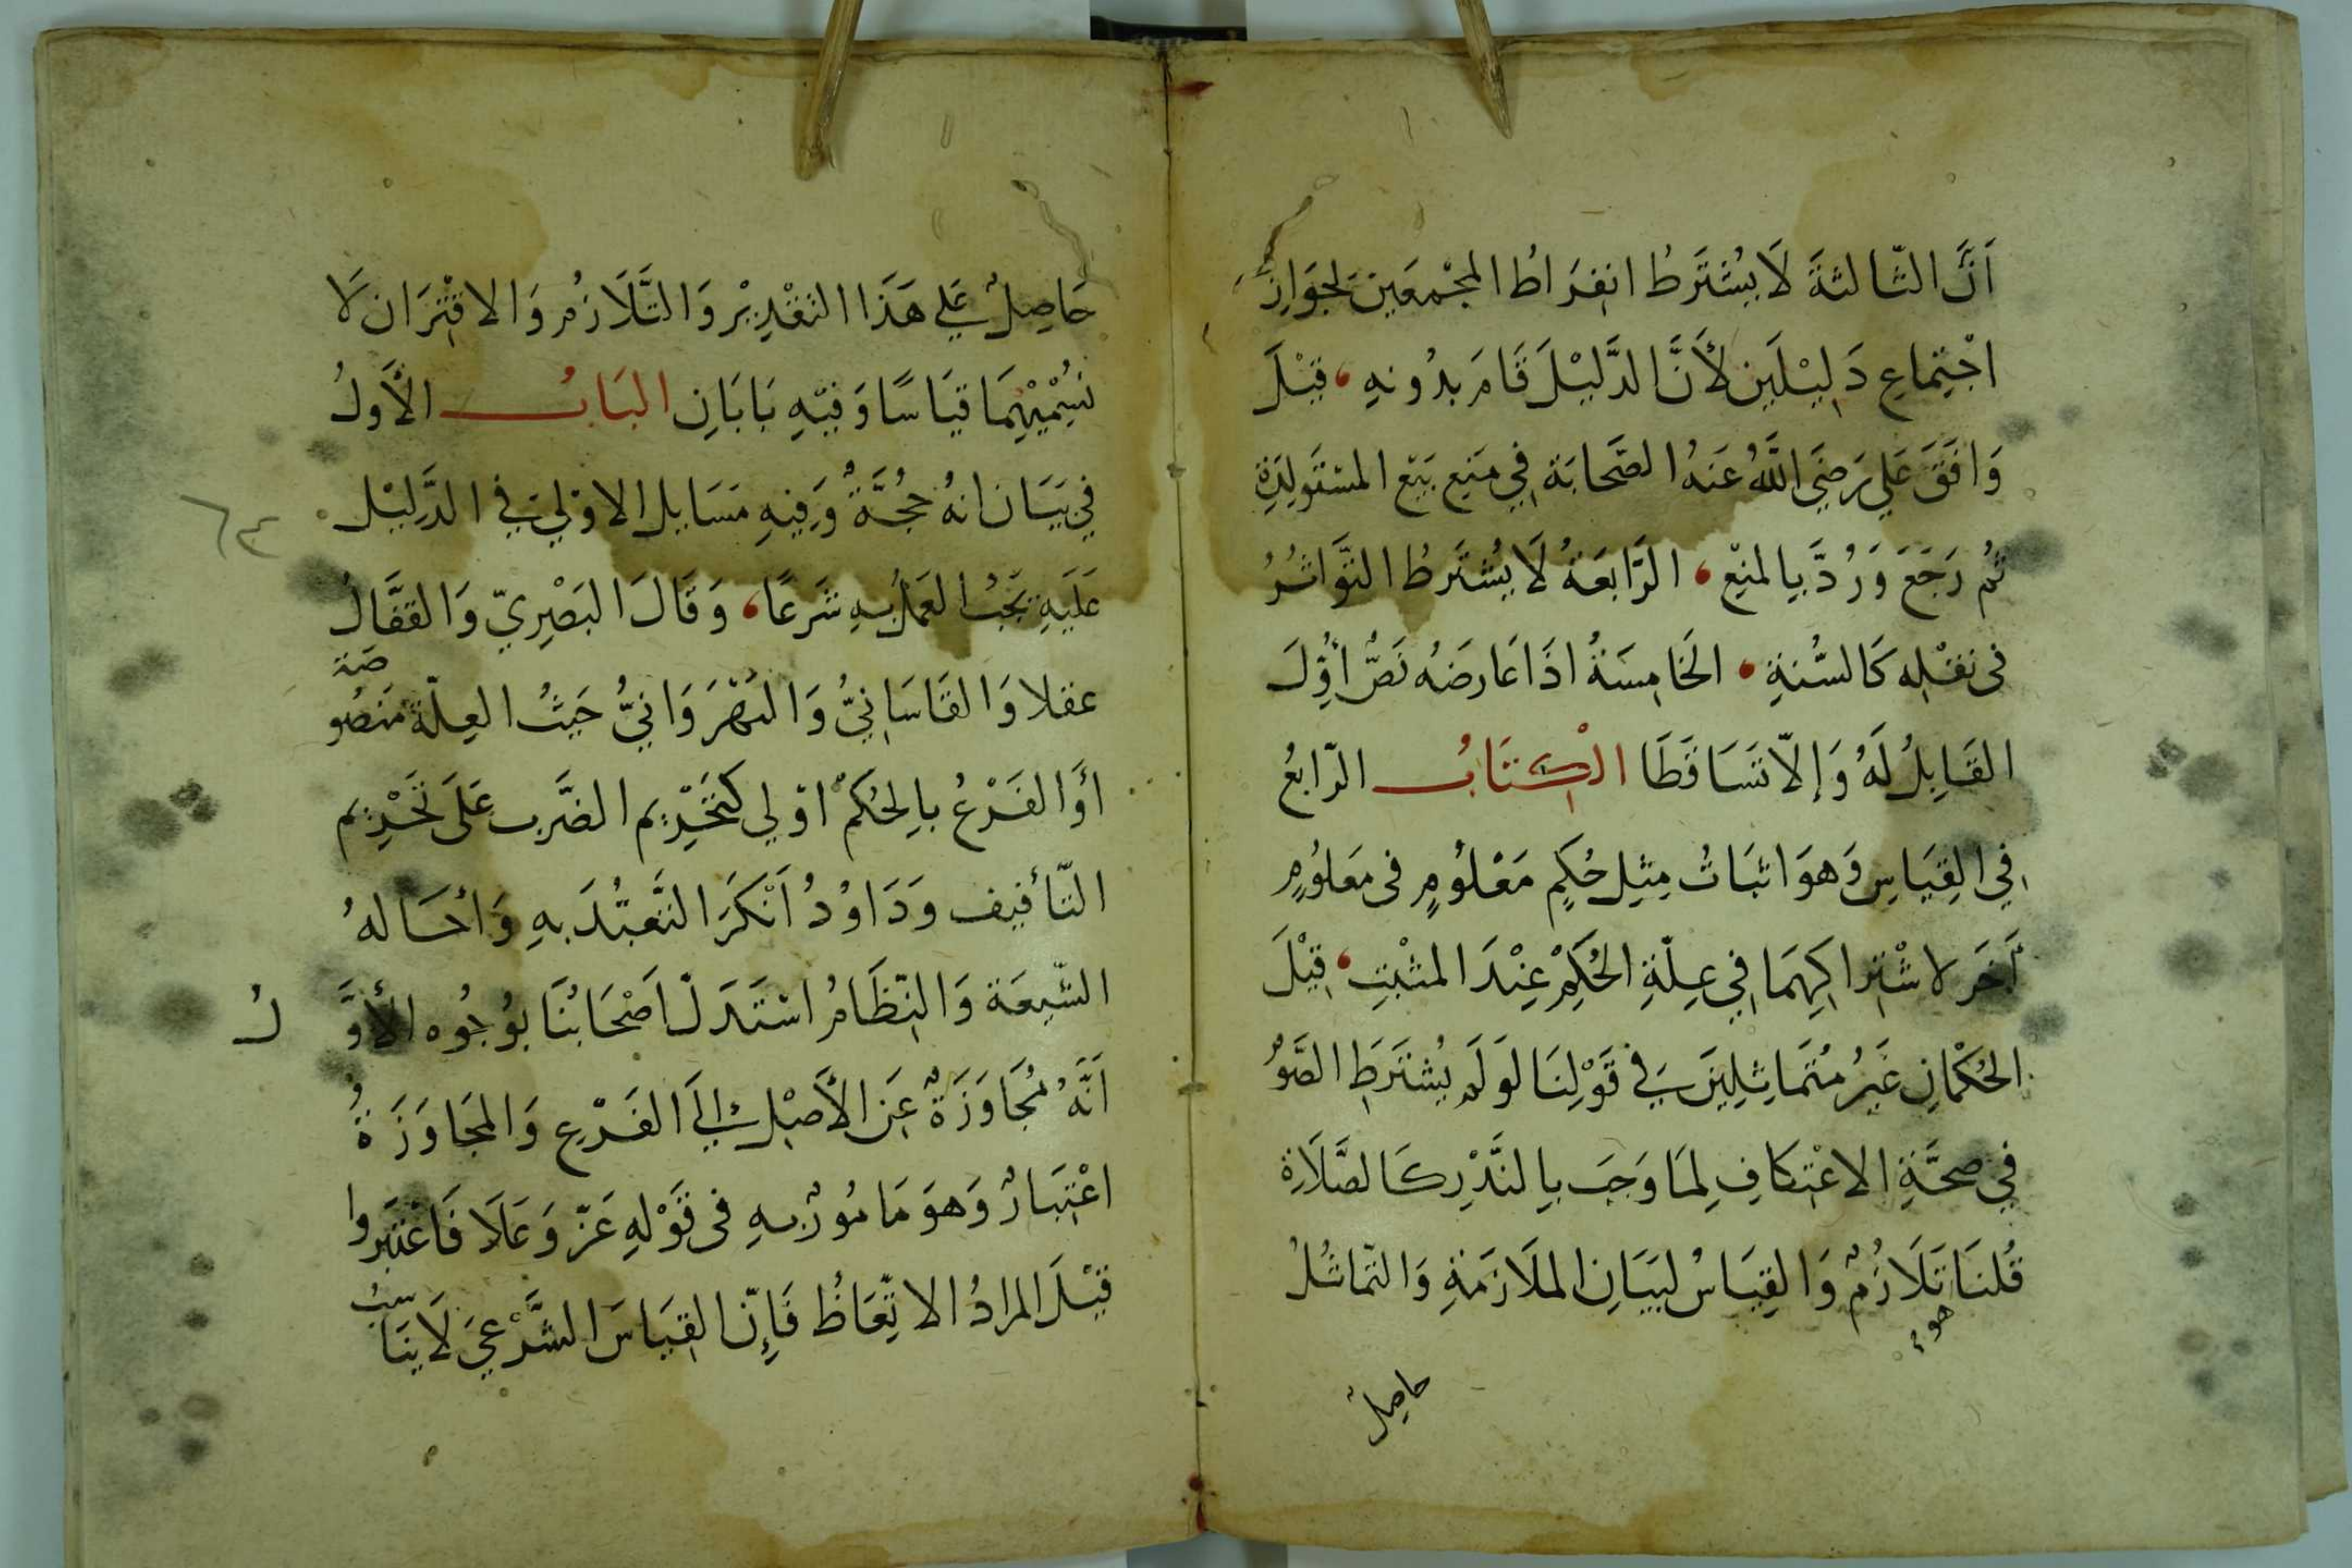 اَنَّ الثّالثةَ لَا يُشْتَرطُ انقِرَاطُ المجْمعَين لجَوَازِ
اجْتِماعِ دَلِيْلَين لأَنَّ الدَّلِيْلَ قَامَ بدُونهِ، قِيْلَ
وَافَقَ عَلي رَضِيَ اللَّهُ عَنهُ الصَّحَابَة فِي مَنِع بَيْع المسْتَولِدَةِ
ثُم رَجَعَ وَرُدَّ بِالمنْع، الرَّابعَةُ لَا يُشتَرطُ التَّوَاتُرُ
فى نقْلِه كَالسُّنةِ، الخَامِسَةُ اذَا عَارضَهُ نَصٌّ أُوِّلَ
القَابِلُ لَهُ وَإلاّ تَسَاقَطَا الْكِتَابُ الرّابعُ
فِي القِيَاسِ وَهوَ اثبَاتُ مِثلِ حُكمٍ مَعْلُومٍ فى مَعلُومٍ
آخَر لاشْتِراكِهِمَا فِي عِلّةِ الحُكمْ عِنْدَ المثْبتِ، قِيْلَ
الحُكْمَانِ غَيرُ مُتَمَاثِلِينَ فِي قَوْلِنَا لَو لَم يُشتَرَطِ الصَّومُ
فِي صِحَّةِ الاعْتِكافِ لِمَا وَجَبَ بِالنَّذْرِ كَالصَّلَاةِ
قُلنَا تَلَازُمٌ وَالقِيَاسُ لبيَانِ الملَازمَةِ وَالتّماثُلُ
هو
حاصِلٌ
حَاصِلٌ عَلي هَذَا التّقْدِيْرِ وَالتَّلَازمُ وَالاقتْرَان لَا
نُسَمِّيْهِمَا قيَاسًا وَفيْهِ بَابَانِ البَابُ الأَولُ
فِي بَيَان انهُ حُجَّةٌ وَفِيهِ مَسَايل الاوْليَ فِي الدَّلِيْل
عَلَيهِ يَجبُ العَمَلُ بهِ شَرعًا، وَقَالَ البَصْرِيّ وَالقفَّالُ
عقلا وَالقَاسَانِيُّ وَالنّهْرَوَانيُّ حَيثُ العِلّة مَنصُو
صَة
أوَ الفَرْعُ بالحُكمْ اوْلي كَتَحْرِيْم الضَّرب عَلَى تَحْرِيْم
التّأفيف وَدَاوُدُ اَنْكَرَ التَّعبُّدَ بهِ وَأحَالهُ
الشّيعَة وَالنِّظَامُ اسْتَدَلَّ اَصْحَابُنَا بوُجُوه الأوَّ
لُ
اَنّهُ مُجَاوَزَةٌ عَنِ الأَصْلِ إلَي الفَرْعِ وَالمجَاوَزَةُ
اعْتِبَارٌ وَهوَ مَامُورٌ بهِ فى قَوْلهِ عَزّ وَعَلَا فَاعْتَبرُوا
قِيْلَ المرادُ الاتِّعَاظُ فَإِنّ القِيَاسَ الشَّرْعِيَ لَا ينَا
سِبُ